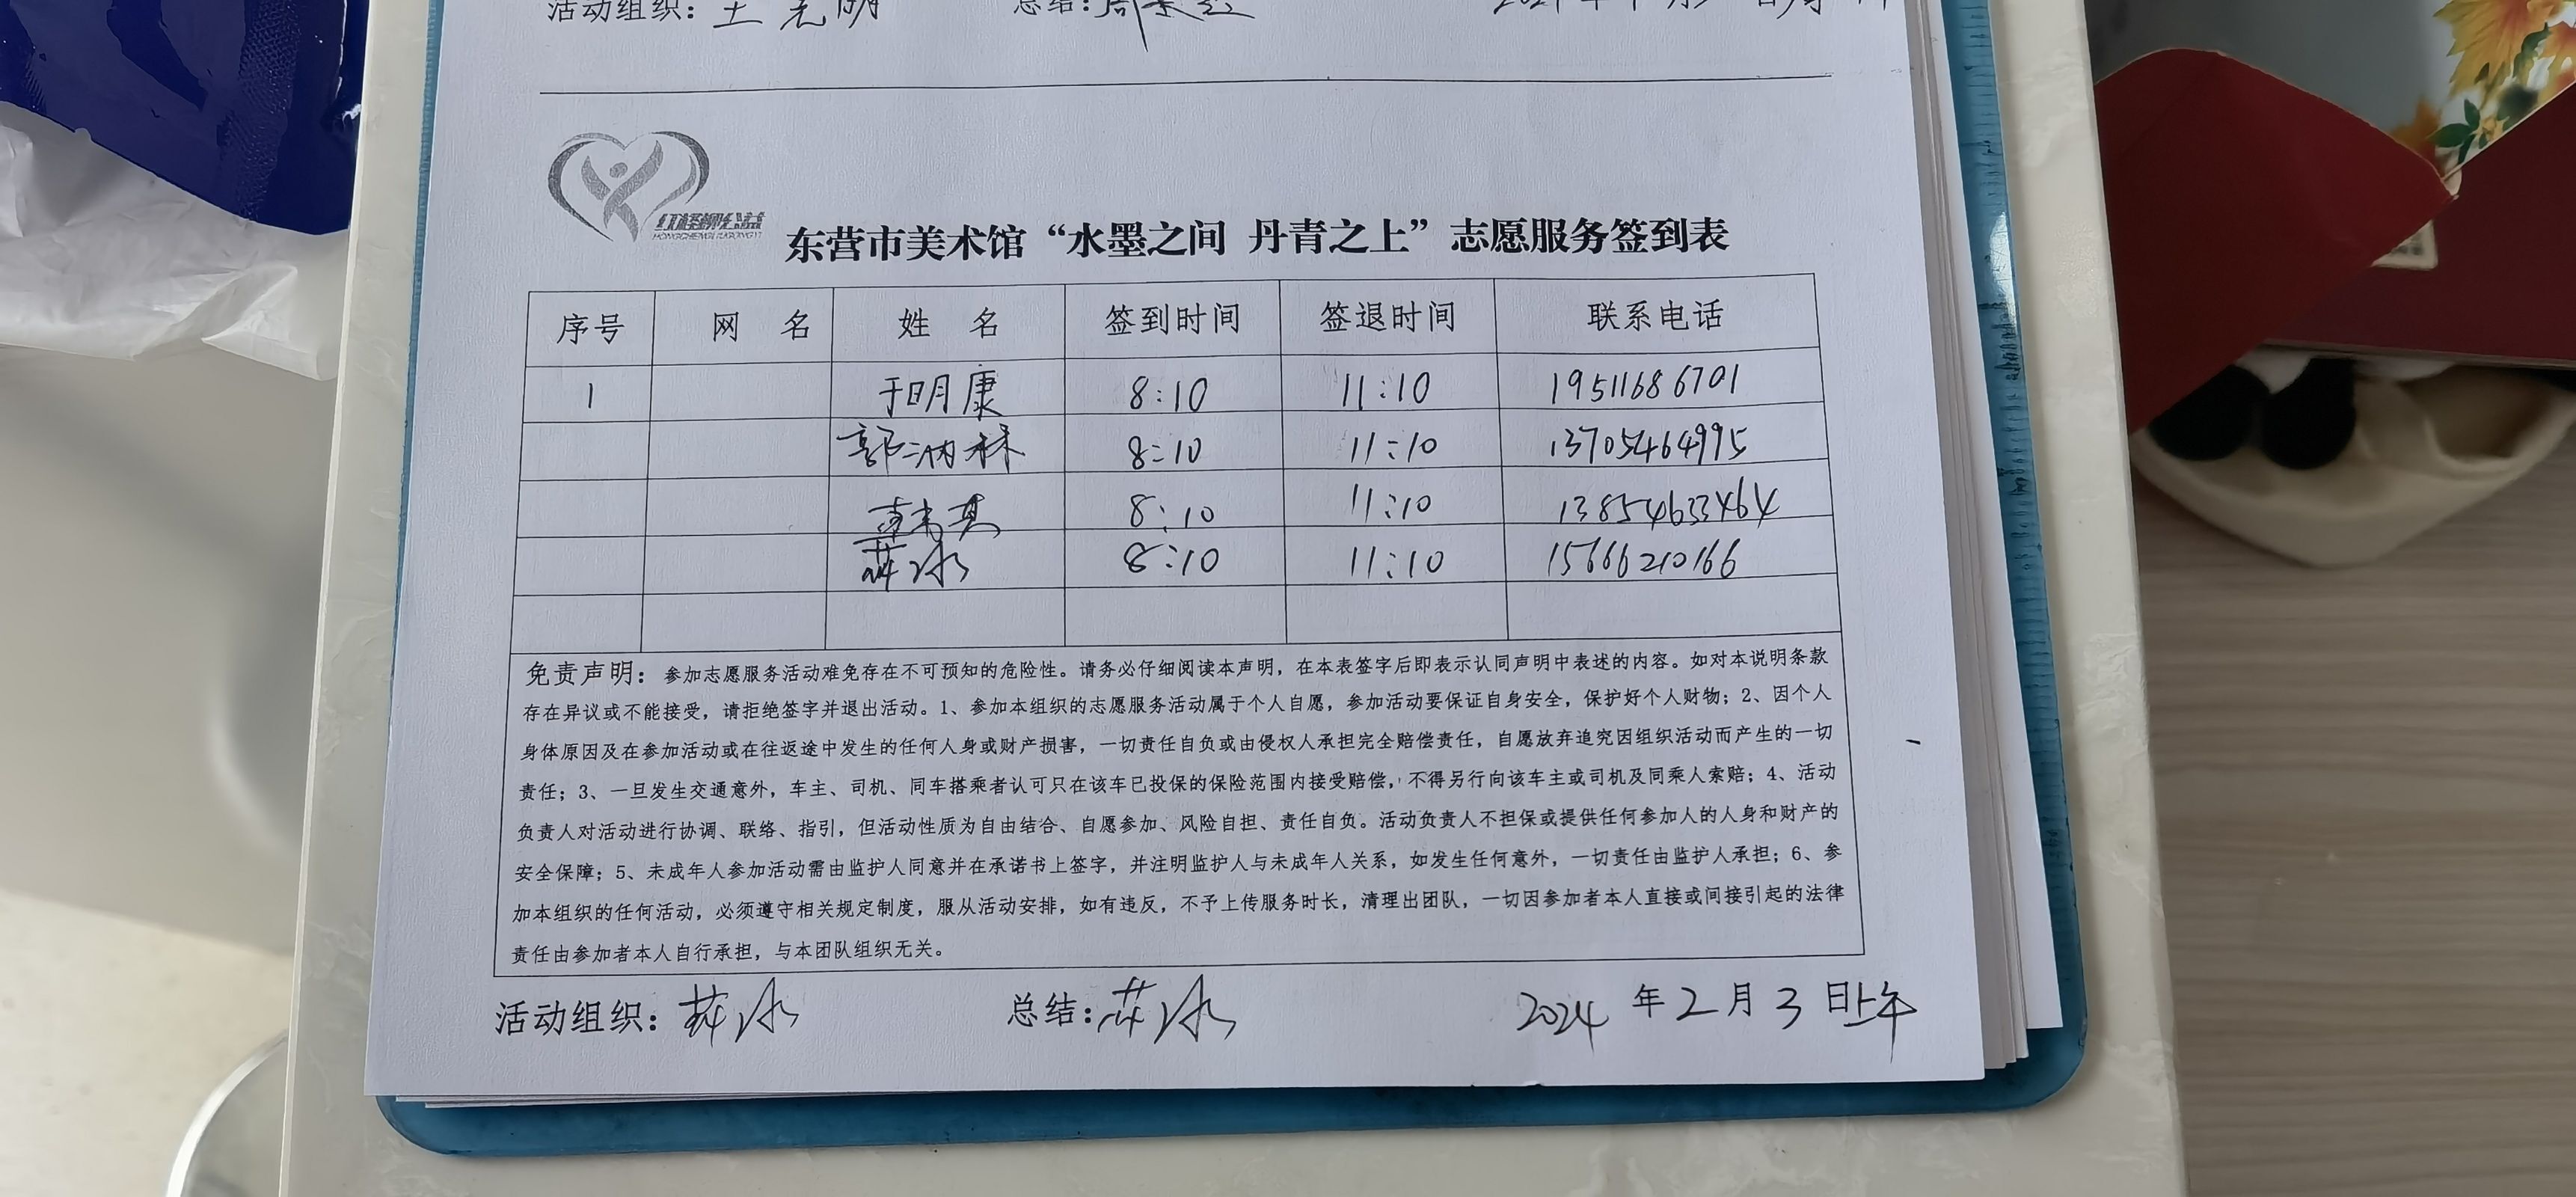 活动组织：王光明 总结：
红柽柳公益
HONGCHENGLIUGONGYI
东营市美术馆“水墨之间 丹青之上”志愿服务签到表
序号 网 名 姓 名 签到时间 签退时间 联系电话
1 于明康 8:10 11:10 19511686701
8:10 11:10 13705464995
8:10 11:10 13854633464
8:10 11:10 15666210166
免责声明：参加志愿服务活动难免存在不可预知的危险性。请务必仔细阅读本声明，在本表签字后即表示认同声明中表述的内容。如对本说明条款
存在异议或不能接受，请拒绝签字并退出活动。1、参加本组织的志愿服务活动属于个人自愿，参加活动要保证自身安全，保护好个人财物；2、因个人
身体原因及在参加活动或在往返途中发生的任何人身或财产损害，一切责任自负或由侵权人承担完全赔偿责任，自愿放弃追究因组织活动而产生的一切
责任；3、一旦发生交通意外，车主、司机、同车搭乘者认可只在该车已投保的保险范围内接受赔偿，不得另行向该车主或司机及同乘人索赔；4、活动
负责人对活动进行协调、联络、指引，但活动性质为自由结合、自愿参加、风险自担、责任自负。活动负责人不担保或提供任何参加人的人身和财产的
安全保障；5、未成年人参加活动需由监护人同意并在承诺书上签字，并注明监护人与未成年人关系，如发生任何意外，一切责任由监护人承担；6、参
加本组织的任何活动，必须遵守相关规定制度，服从活动安排，如有违反，不予上传服务时长，清理出团队，一切因参加者本人直接或间接引起的法律
责任由参加者本人自行承担，与本团队组织无关。
活动组织： 总结： 2024年2月3日上午